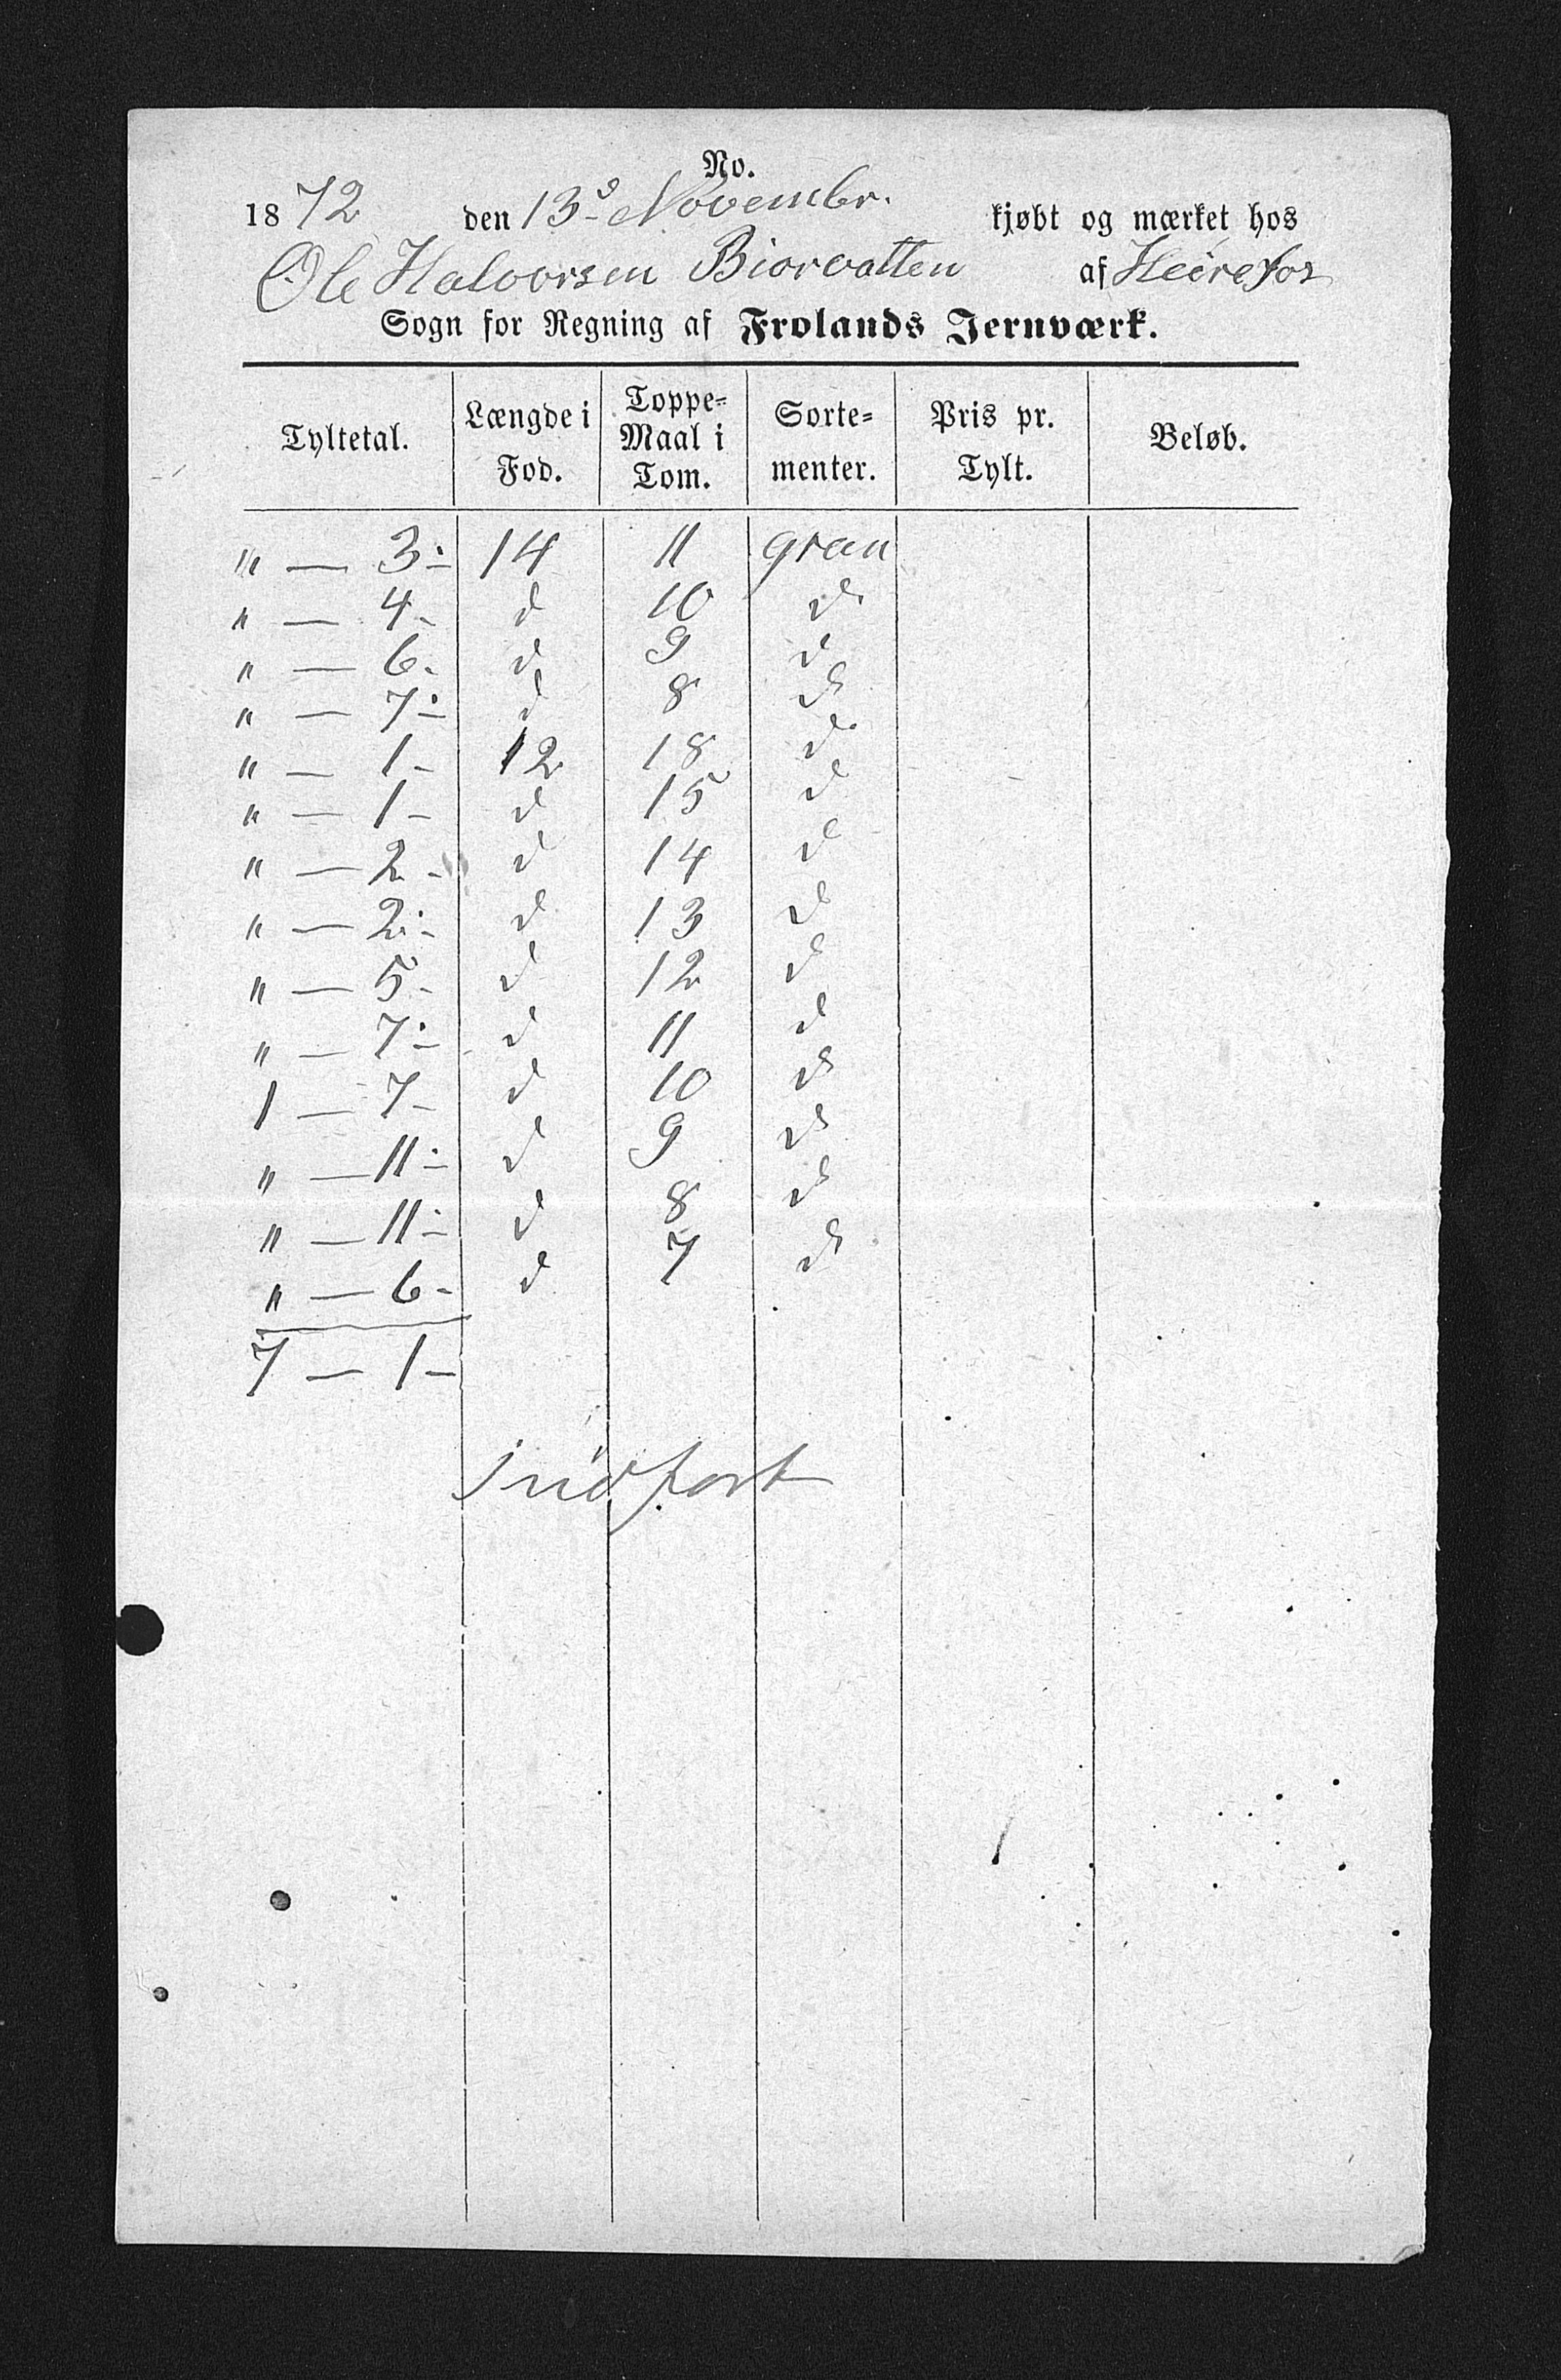 No.
1872 den 13d Novembr. kjøbt og mærket hos
Ole Halvorsen Biorvatten af Heirefos
Sogn for Regning af Frolands Jernværk.
Tyltetal. Længde i Fod. Toppe-Maal i Tom. Sorte-menter. Pris pr. Tylt. Beløb.
" — 3- 14 11 gran
" — 4- d 10 d
" — 6- d 9 d
" — 7- d 8 d
" — 1- 12 18 d
" — 1- d 15 d
" — 2- d 14 d
" — 2- d 13 d
" — 5- d 12 d
" — 7- d 11 d
1 — 7- d 10 d
" — 11- d 9 d
" — 11- d 8 d
" — 6- d 7 d
7 — 1-
indført